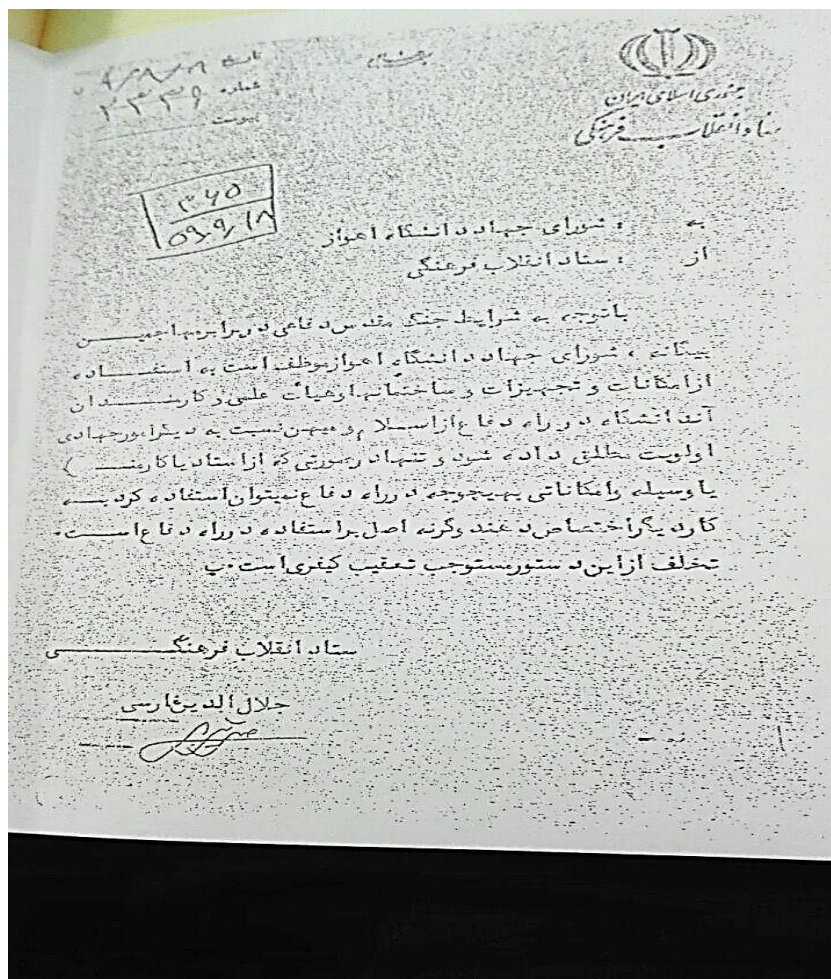 جمهوری اسلامی ایران
ستاد انقلاب فرهنگی
تاریخ
شماره ۲۳۳۶
پیوست
۳۶۵
۵۹.۹/۱۸
به : شورای جهاد دانشگاه اهواز
از : ستاد انقلاب فرهنگی
باتوجه به شرایط جنگ مقدس دفاعی دربرابر مهاجمین
بیگانه ، شورای جهاد دانشگاه اهواز موظف است به استفاده
از امکانات و تجهیزات و ساختمانها و هیات علمی و کارمندان
آن دانشگاه در راه دفاع از اسلام و میهن نسبت به دیگر امور جهادی
اولویت مطلق داده شود و تنها در صورتی که از استاد یا کارمند
یا وسیله و امکاناتی بهیچوجه در راه دفاع نمیتوان استفاده کرد به
کار دیگر اختصاص دهند وگرنه اصل بر استفاده در راه دفاع است.
تخلف از این دستور مستوجب تعقیب کیفری است.پ
ستاد انقلاب فرهنگی
جلال الدین فارسی